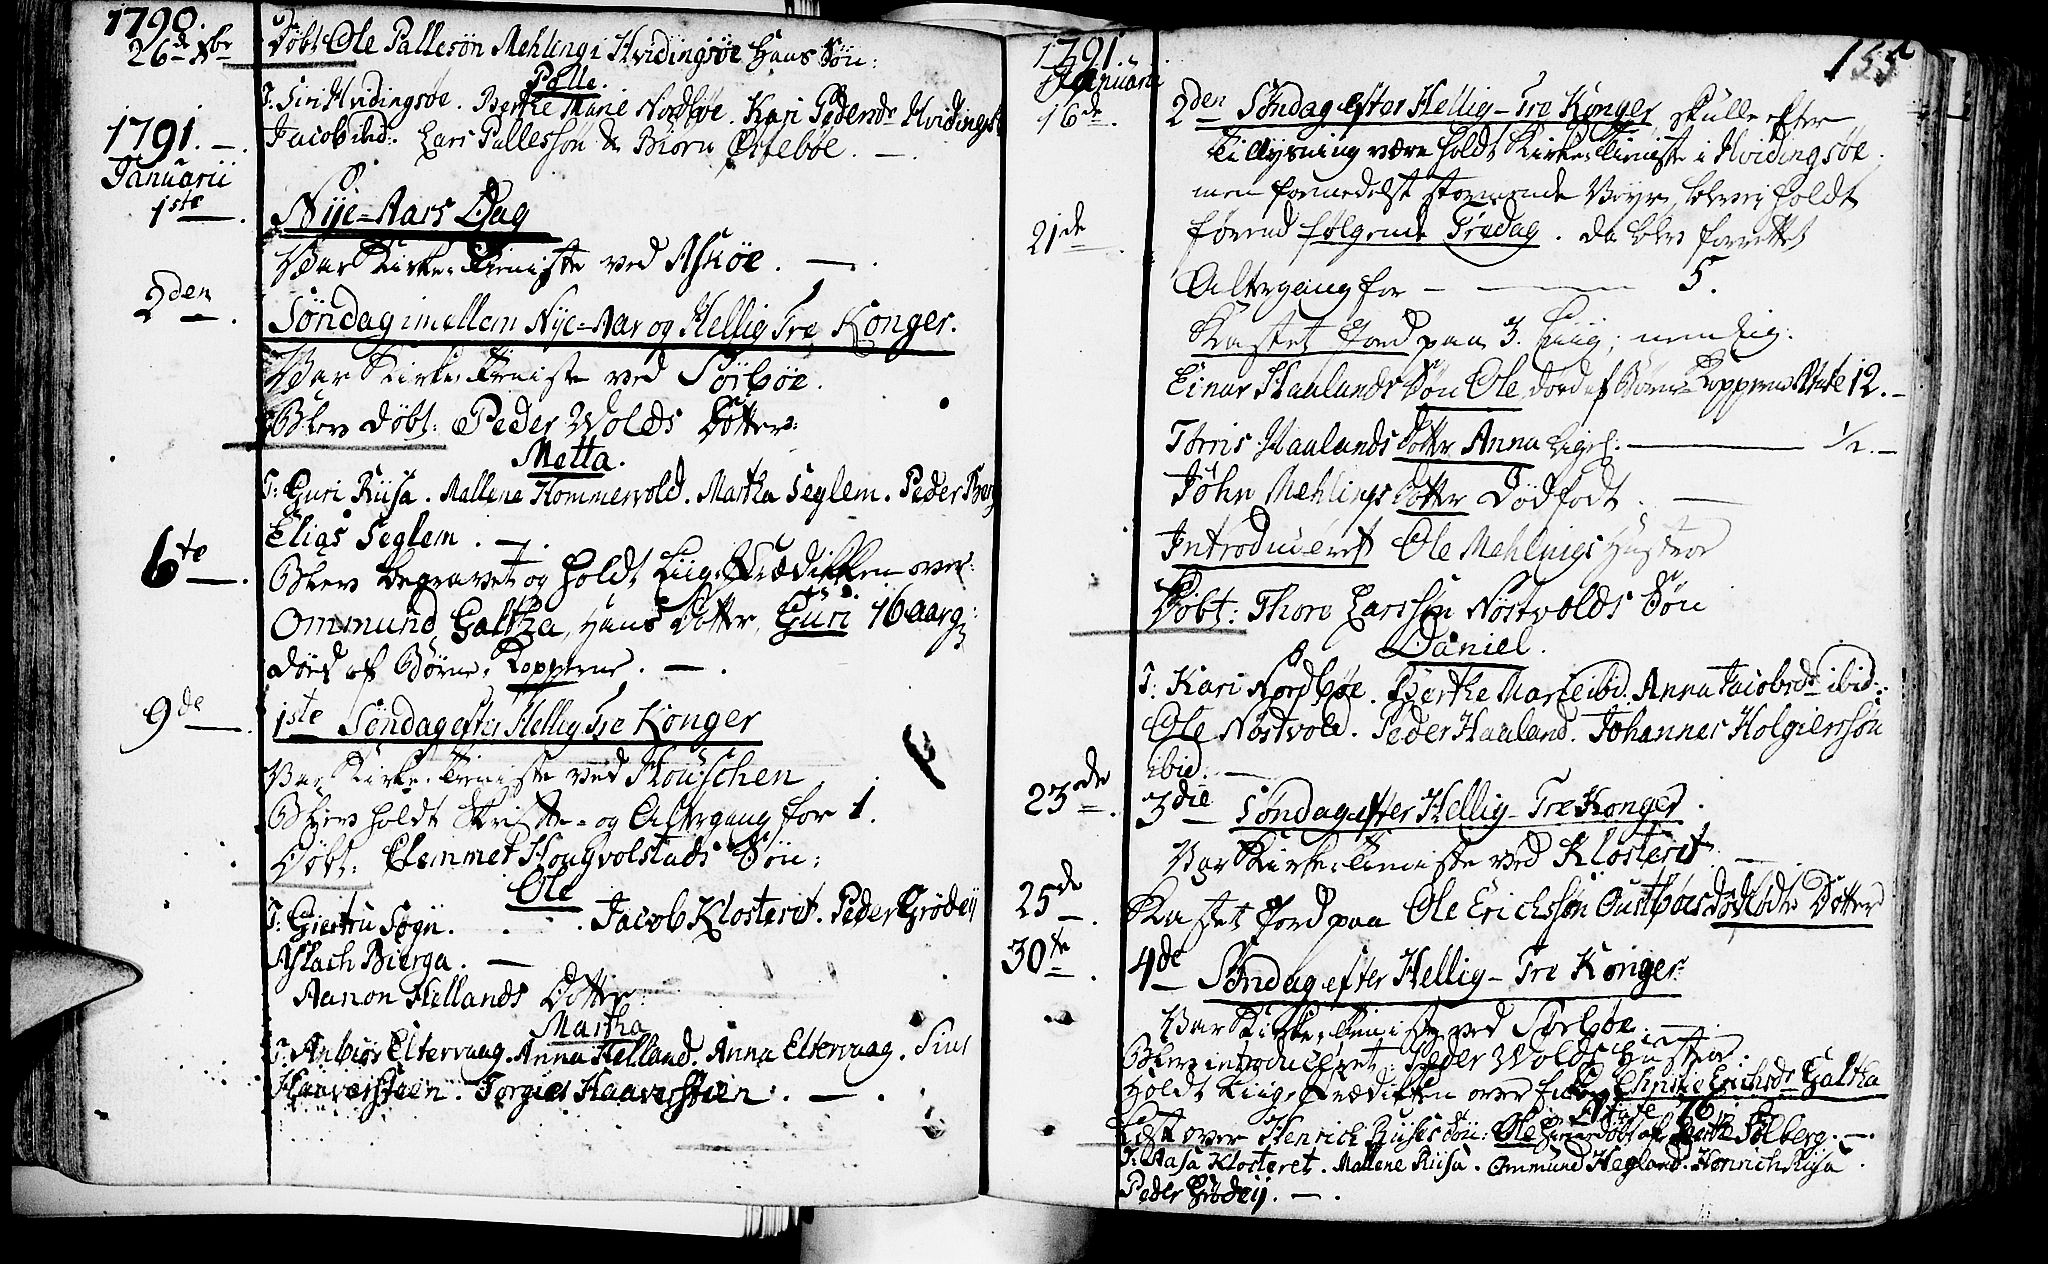 1790.
26de Xbr Døbt Ole Pallesøn Mehling i Hvidingsøe Hans Søn:
Palle.
T. Siri Hvidingsøe. Berthe Marie Nordbøe. Kari Pedersdr Hvidingsøe
1791. Jacob ibid. Lars Pallessøn & Biørn Østebøe.
Januarii
1ste Nÿe-Aars Dag
Var Kirke-Tieniste ved Askøe.
2den Søndag imellem Nÿe-Aar og Hellig Tre Konger.
Var Kirke-Tieniste ved Sørbøe.
Blev døbt: Peder Wolds Dotter:
Metta.
T: Guri Riisa. Mallene Hommervold. Martha Seglem. Peder Berg
Elias Seglem.
6te Blev begravet og holdt Liig-Prædikken over
Ommund Galtha, Hans Dotter, Guri 16 aarg:
død af Børne-Kopperne.
9de 1ste Søndag efter Hellig Tre Konger
Var Kirke-Tieniste ved Houschen
Blev holdt Skrifte- og Altergang for 1.
Døbt: Clemmet Hougvolstads Søn:
Ole
T: Giertru Sogn. Jacob Klosteret. Peder Grødeij
Aslach Bierga.
Aanon Hellands Dotter:
Martha
T. Anbiør Eltervaag. Anna Helland. Anna Eltervaag. Siur
Haaversteen. Torgier Haaversteen.
1791. 155
Januarii
16de 2den Søndag efter Hellig-Tre Konger skulle efter
Tillysning være holdt Kirke-Tieniste i Hvidingsøe.
men formedelst stormende Veyr, blev ej holdt
21de førend følgende Fredag. da blev forrettet
Altergang for 5.
Kastet Jord paa 3. Liig; nemlig:
Einar Haalands Søn Ole død af Børne-Kopperne Alt 12.
Torris Haalands Dotter Anna ligel: 1/2.
John Mehlings Dotter Dødfødt.
Introduceret Ole Mehlings Hustroe
Døbt: Thore Larssøn Nøstvolds Søn
Daniel.
T: Kari Nordbøe. Berthe Marie ibid. Anna Jacobsdr ibid.
Ole Nøstvold. Peder Haaland. Johannes Holgierssøn
ibid.
23de 3die Søndag efter Hellig-Tre Konger.
Var Kirke-Tieniste ved Klosteret.
25de Kastet Jord paa Ole Erichssøn Oustbøes dødfødte Dotter
30te 4de Søndag efter Hellig-Tre Konger
Var Kirke-Tieniste ved Sørbøe.
Blev introduceret: Peder Wolds Hustroe.
Holdt Liig-Prædikken over Christie Erichsdr Galtha
76
over Henrich Riises Søn: Ole døbt af Berthe Solberg.
T: Aasa Klosteret. Mallene Riisa. Ommund Hegland. Henrich Riisa
Peder Grødeij.